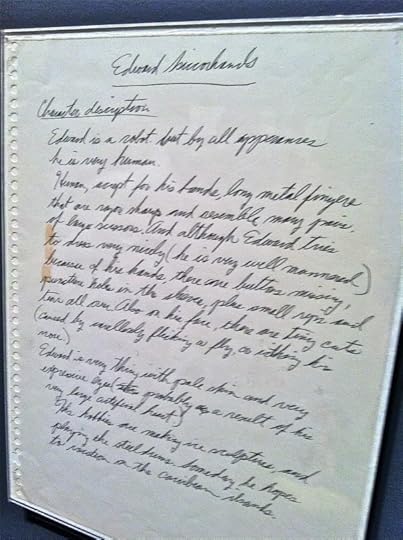 Edward Scissorhands
Character description
Edward is a robot but by all appearances
he is very human.
Human, except for his hands, long metal fingers
that are razor sharp and resemble many pairs
of large scissors. And although Edward tries
to dress very nicely (he is very well mannered)
because of his hands, there are buttons missing,
puncture holes in the sleeves, plus small rips and
tears all over. Also on his face, there are tiny cuts
(caused by needlessly flicking a fly, or itching his
nose.)
Edward is very thin, with pale skin and very
expressive eyes (probably as a result of his
very large artificial heart)
His hobbies are making ice sculptures, and
playing the steel drums. Someday he hopes
to vacation on the caribbean islands.